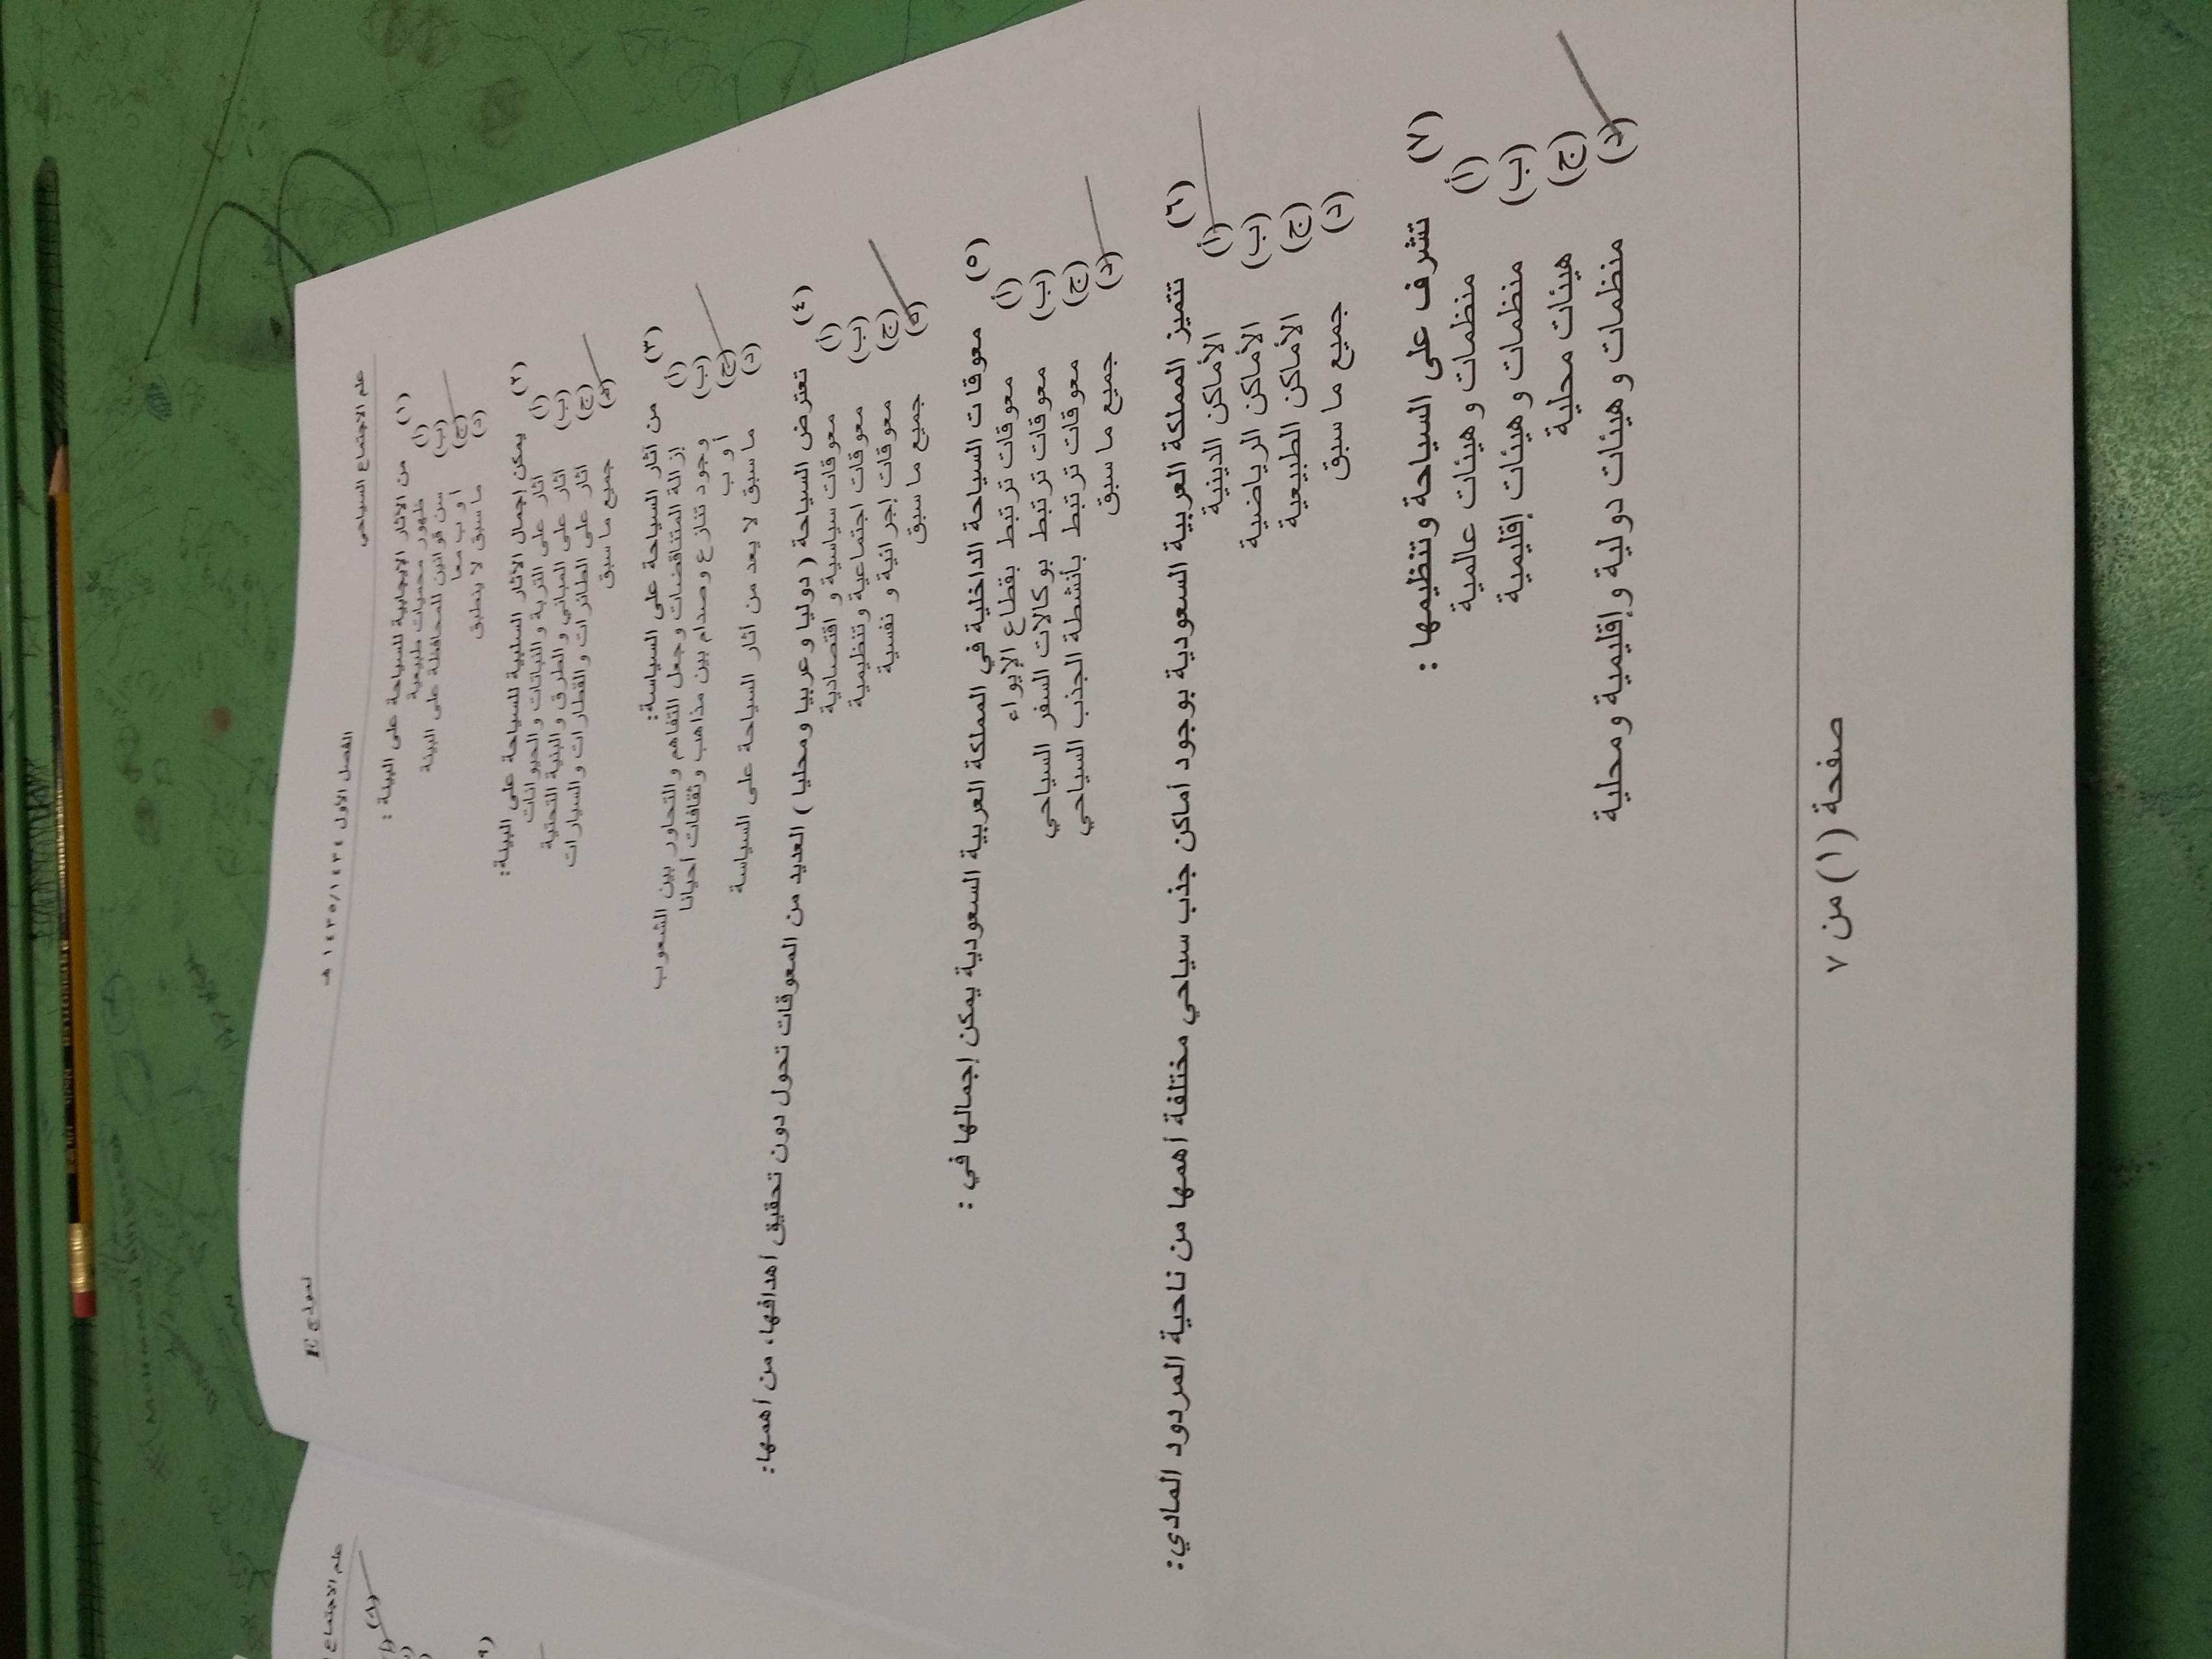 علم الاجتماع السياحي الفصل الأول ١٤٣٥/١٤٣٤ هـ نموذج E
(١) من الآثار الإيجابية للسياحة على البيئة :
(أ) ظهور محميات طبيعية
(ب) سن قوانين للمحافظة على البيئة
(ج) أ و ب معا
(د) ما سبق لا ينطبق
(٢) يمكن إجمال الآثار السلبية للسياحة على البيئة:
(أ) آثار على التربة و النباتات و الحيوانات
(ب) آثار على المباني و الطرق و البنية التحتية
(ج) آثار على الطائرات و القطارات و السيارات
(د) جميع ما سبق
(٣) من آثار السياحة على السياسة:
(أ) إزالة المتناقضات وجعل التفاهم و التحاور بين الشعوب
(ب) وجود تنازع وصدام بين مذاهب وثقافات أحيانا
(ج) أ و ب
(د) ما سبق لا يعد من آثار السياحة على السياسة
(٤) تعترض السياحة ( دوليا و عربيا ومحليا ) العديد من المعوقات تحول دون تحقيق أهدافها، من أهمها:
(أ) معوقات سياسية و اقتصادية
(ب) معوقات اجتماعية وتنظيمية
(ج) معوقات إجرائية و نفسية
(د) جميع ما سبق
(٥) معوقات السياحة الداخلية في المملكة العربية السعودية يمكن إجمالها في :
(أ) معوقات ترتبط بقطاع الإيواء
(ب) معوقات ترتبط بوكالات السفر السياحي
(ج) معوقات ترتبط بأنشطة الجذب السياحي
(د) جميع ما سبق
(٦) تتميز المملكة العربية السعودية بوجود أماكن جذب سياحي مختلفة أهمها من ناحية المردود المادي:
(أ) الأماكن الدينية
(ب) الأماكن الرياضية
(ج) الأماكن الطبيعية
(د) جميع ما سبق
(٧) تشرف على السياحة وتنظيمها :
(أ) منظمات و هيئات عالمية
(ب) منظمات و هيئات إقليمية
(ج) هيئات محلية
(د) منظمات و هيئات دولية و إقليمية و محلية
صفحة (١) من ٧
علم الاجتماع